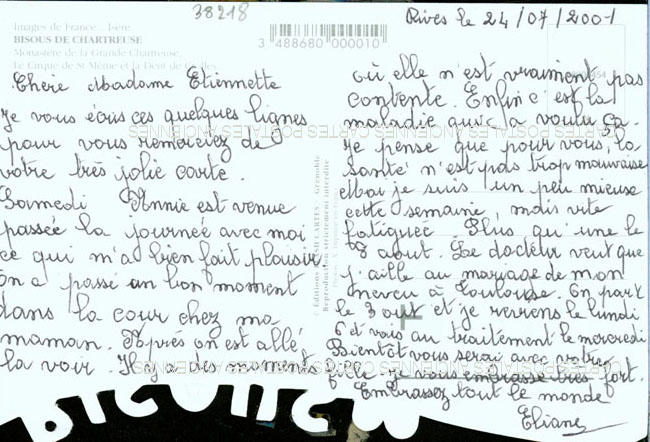 38218
Rives le 24/07/2001
Images de France - Isère
BISOUS DE CHARTREUSE
Monastère de la Grande Chartreuse,
Le Cirque de St Même et la Dent de Crolles.
3 488680 000010
Chère Madame Etiennette
Je vous écris ces quelques lignes
pour vous remerciez de
votre très jolie carte.
Samedi Annie est venue
passée la journée avec moi
ce qui m'a bien fait plaisir
on a passé un bon moment
dans la cour chez ma
maman. Après on est allé
la voir. Il y a des moments
où elle n'est vraiment pas
contente. Enfin c'est la
maladie qui la voulu ça.
Je pense que pour vous, la
santé n'est pas trop mauvaise
Moi je suis un peu mieuse
cette semaine, mais vite
fatiguée. Plus qu'une le
8 aout. Le docteur veut que
j'aille au mariage de mon
neveu à Toulouse. On part
le 3 out et je reviens le lundi
6 et vais au traitement le mercredi
Bientôt vous serai avec votre
fille. je vous embrasse très fort.
Embrassez tout le monde
Eliane
CARTES POSTALES ANCIENNES
© Editions
CARTES - Grenoble
Reproduction strictement interdite